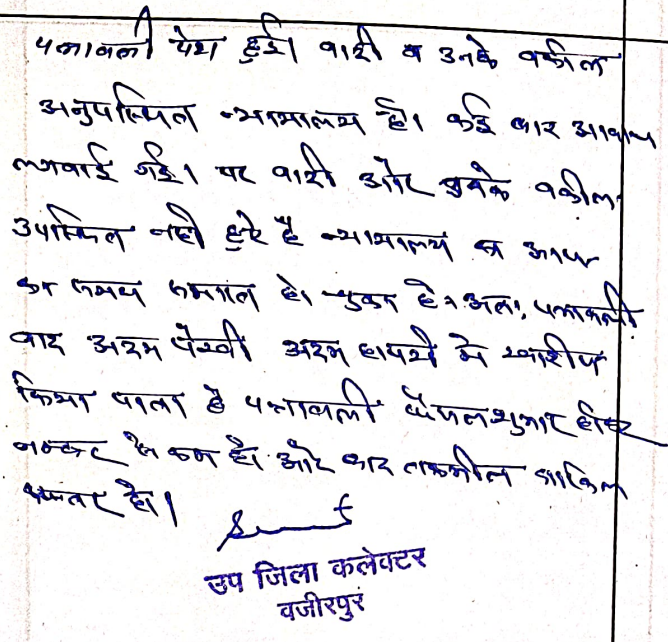 पत्रावली पेश हुई। वादी व उनके वकील
अनुपस्थित न्यायालय है। कई बार आवाज
लगवाई गई। पर वादी और उनके वकील
उपस्थित नही हुये है न्यायालय का आज
का समय समाप्त हो चुका है। अतः पत्रावली
वाद अदम पैरवी अदम हाजरी मे खारीज
किया जाता है पत्रावली फैसलशुमार होकर
नम्बर से कम हो और बाद तकमील दाखिल
दफ्तर हो।
उप जिला कलेक्टर
वजीरपुर